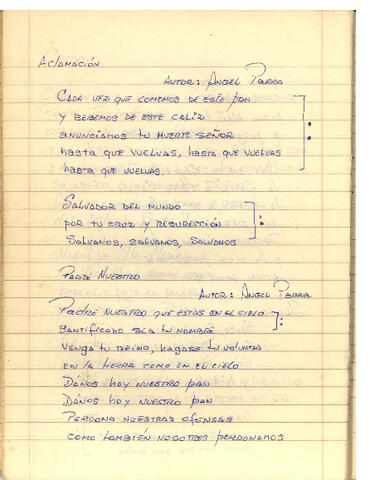 Aclamación
Autor: Angel Parra
Cada vez que comemos de este pan
y bebemos de este caliz
anunciamos tu muerte Señor
hasta que vuelvas, hasta que vuelvas
hasta que vuelvas.
Salvador del mundo
por tu cruz y resurección
Salvanos, salvanos, salvanos
Padre Nuestro
Autor: Angel Parra
Padre nuestro que estas en el cielo
santificado sea tu nombre
venga tu reino, hagase tu voluntad
en la tierra como en el cielo
Dános hoy nuestro pan
Dános hoy nuestro pan
Perdona nuestras ofensas
como también nosotros perdonamos